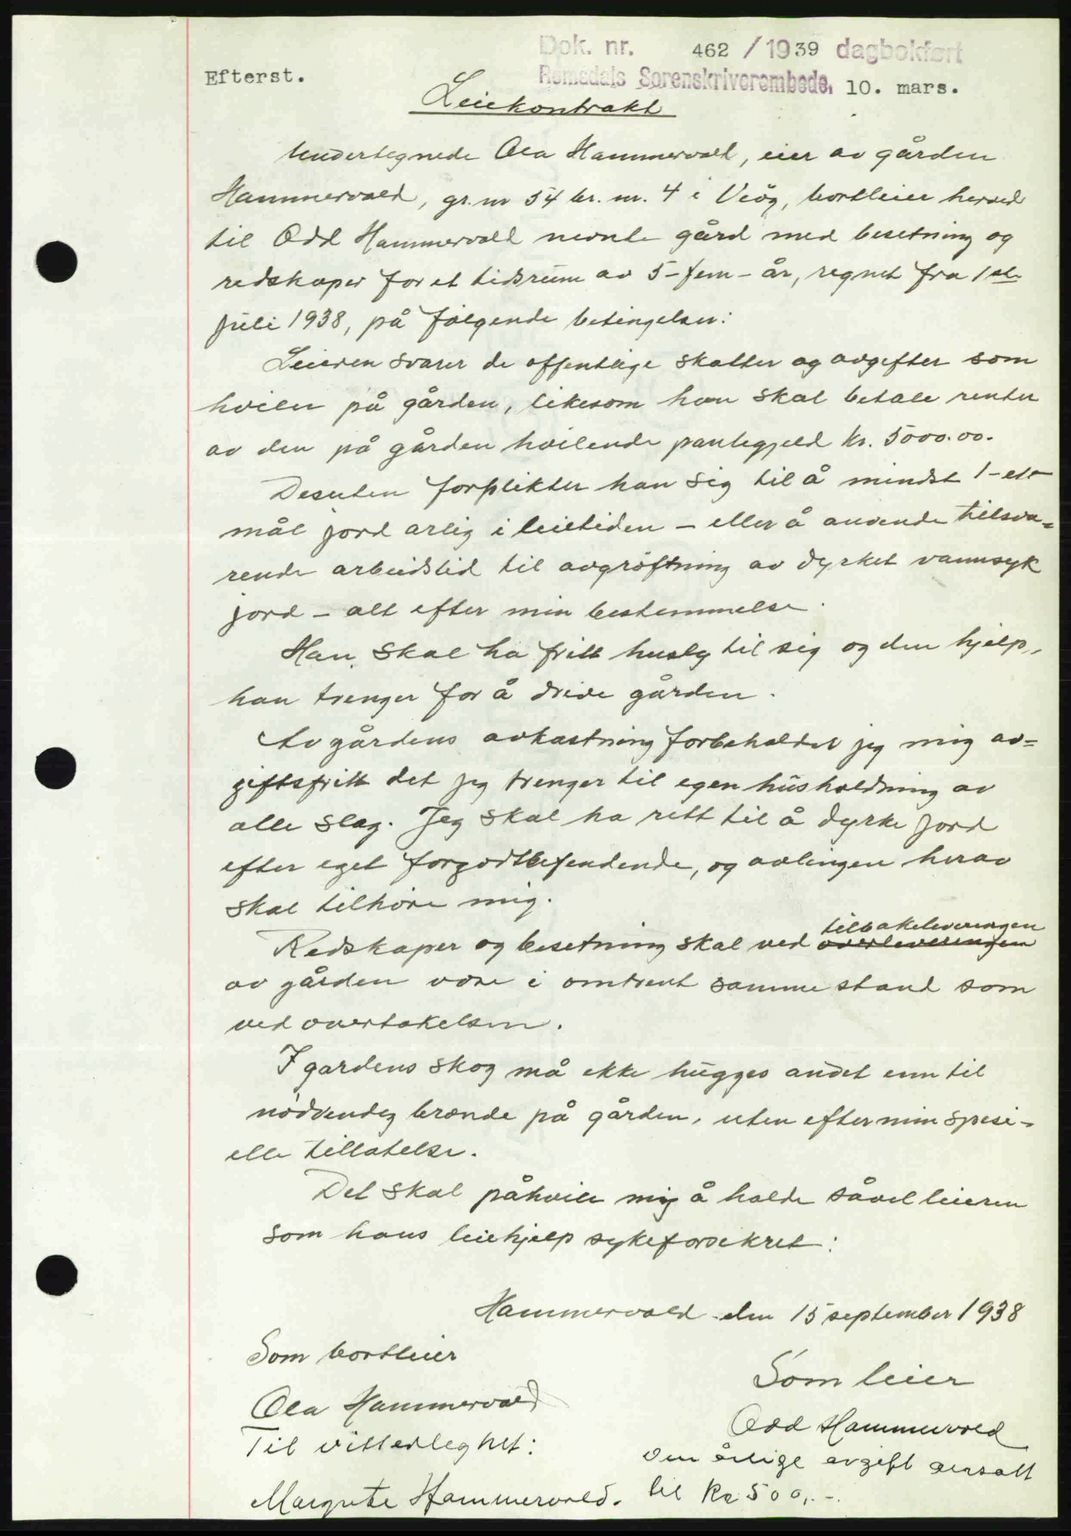 Dok. nr. 462 / 1939 dagbokført
Efterst.
Romsdals Sorenskriverembede, 10. mars.
Leiekontrakt
Undertegnede Ola Hammervold, eier av gården
Hammervold, gr. nr 54 br. nr. 4 i Veöy, bortleier herved
til Odd Hammervold nevnte gård med besetning og
redskaper for et tidsrum av 5-fem-år, regnet fra 1ste
juli 1938, på følgende betingelser:
Leieren svarer de offentlige skatter og avgifter som
hviler på gården, likesom han skal betale renter
av den på gården hvilende pantegjeld kr. 5000.00.
Desuten forplikter han sig til å mindst 1-ett
mål jord arlig i leietiden - eller å anvende tilsva=
rende arbeidstid til avgröftning av dyrket vannsyk
jord - alt efter min bestemmelse.
Han skal ha fritt husly til sig og den hjelp,
han trenger for å drive gården.
Av gårdens avkastning forbeholder jeg mig av=
giftsfritt det jeg trenger til egen husholdning av
alle slag. Jeg skal ha rett til å dyrke jord
efter eget forgodtbefindende, og avlingen herav
skal tilhöre mig.
tilbakeleveringen
Redskaper og besetning skal ved overleveringen
av gården være i omtrent samme stand som
ved overtakelsen.
I gardens skog må ikke hugges andet enn til
nödvendig brænde på gården, uten efter min spesi=
elle tillatelse.
Det skal påhvile mig å holde såvel leieren
som hans leiehjelp sykeforsikret:
Hammervold den 15 september 1938
Som bortleier
Som leier
Ola Hammervold
Odd Hammervold
Til vitterleghet:
den årlige avgift ansatt
Margrete Hammervold.
til Kr 500,-.